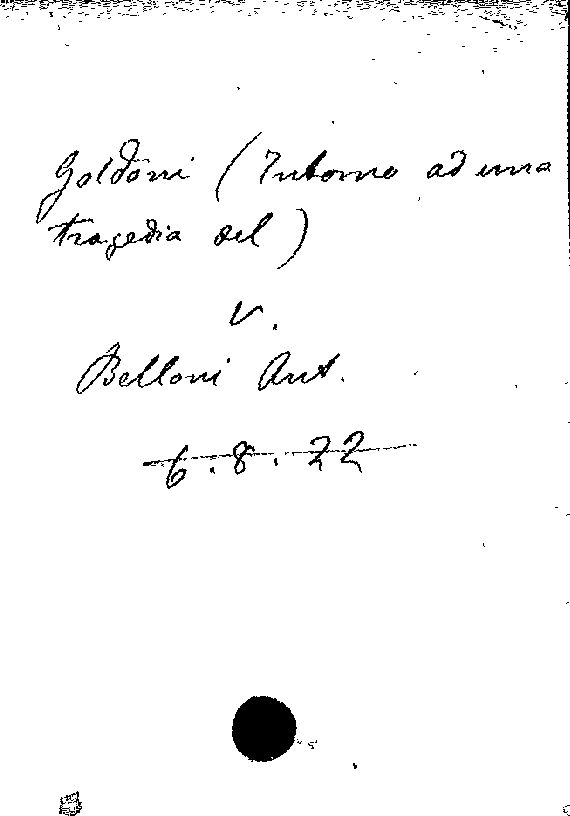 Goldoni (Intorno ad una
tragedia del)
V.
Belloni Ant.
6.8.22